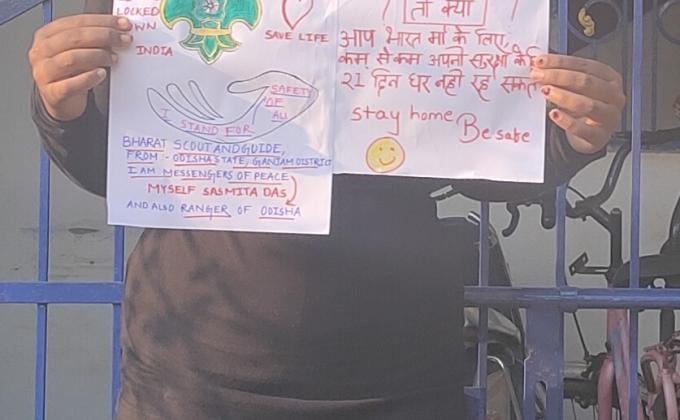 I
LOCKED
OWN
INDIA
SAVE LIFE
I STAND FOR
SAFETY
OF
ALL
BHARAT SCOUT AND GUIDE,
FROM :- ODISHA STATE, GANJAM DISTRICT
I AM MESSENGERS OF PEACE
MYSELF SASMITA DAS
AND ALSO RANGER OF ODISHA
तो क्या
आप भारत माँ के लिए
कम से कम अपनी सुरक्षा के
21 दिन घर नही रह सकते
stay home
Be safe